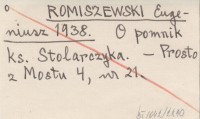 ROMISZEWSKI Euge-
niusz 1938. O pomnik
ks. Stolarczyka. – Prosto
z Mostu 4, nr 21.